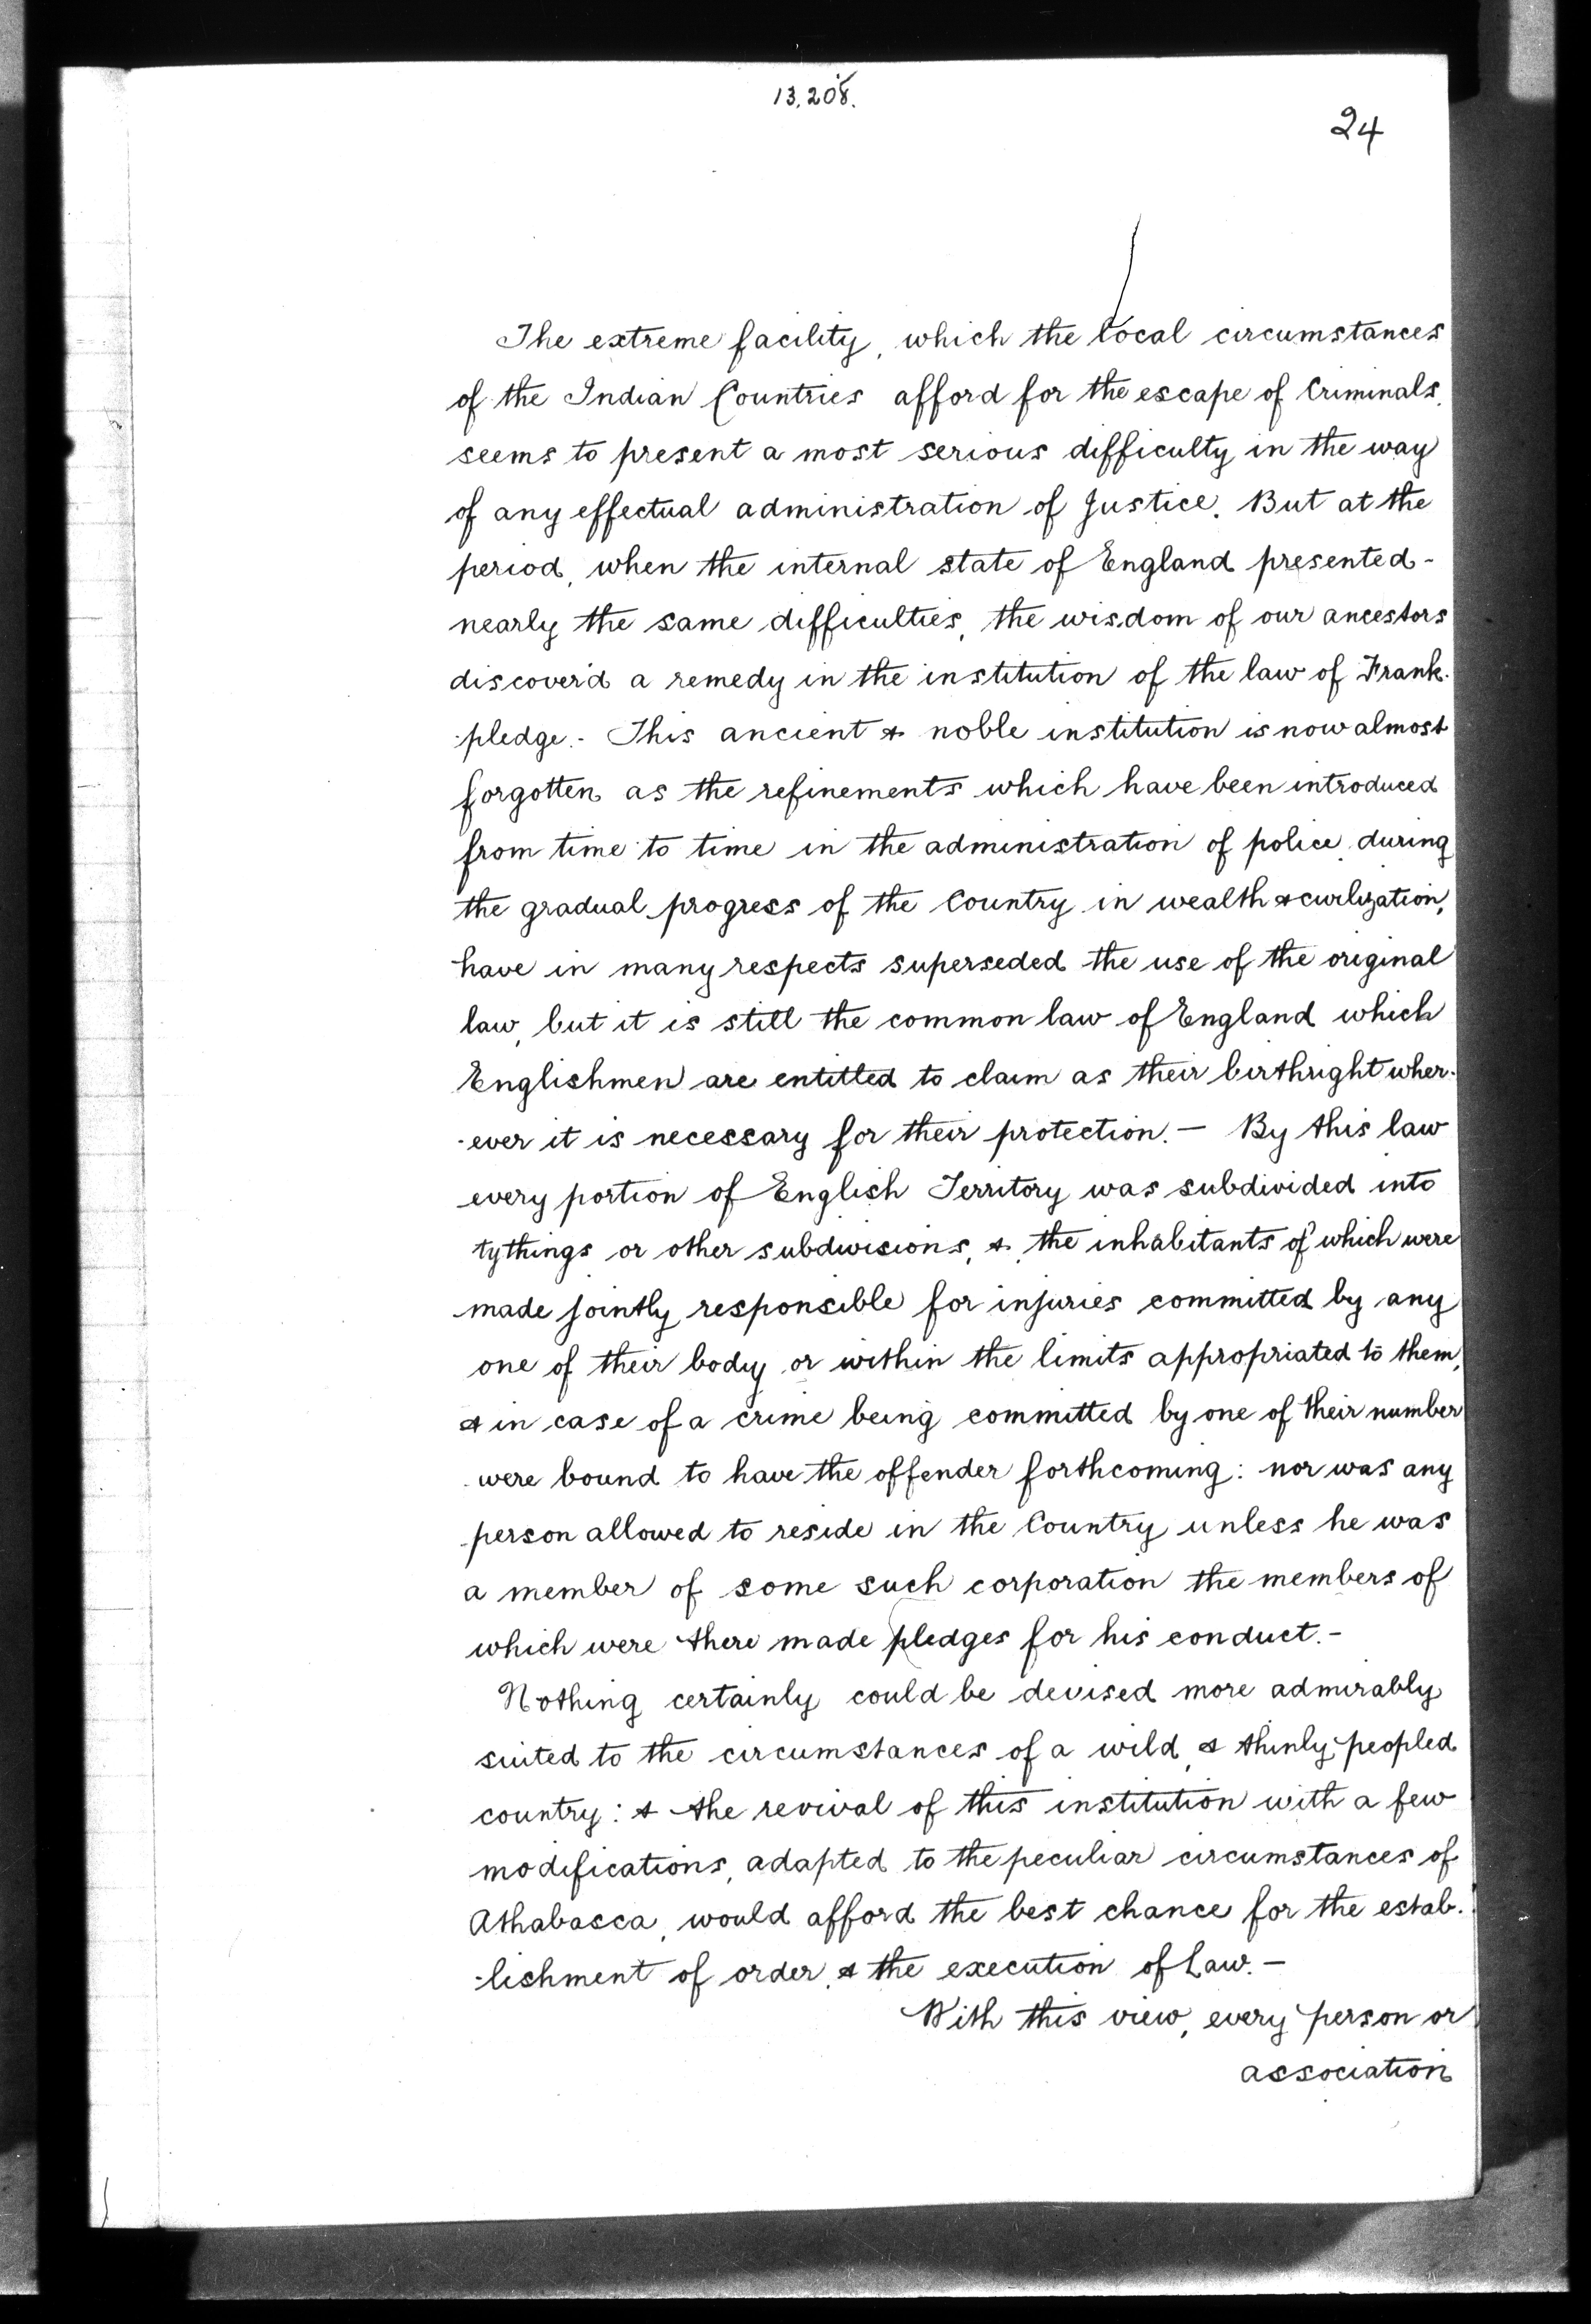 13,208.
24
The extreme facility, which the local circumstances
of the Indian Countries afford for the escape of Criminals,
seems to present a most serious difficulty in the way
of any effectual administration of Justice. But at the
period, when the internal state of England presented -
nearly the same difficulties, the wisdom of our ancestors
discover'd a remedy in the institution of the law of Frank-
-pledge.- This ancient & noble institution is now almost
forgotten as the refinements which have been introduced
from time to time in the administration of police during
the gradual progress of the Country in wealth & civilization,
have in many respects superseded the use of the original
law, but it is still the common law of England which
Englishmen are entitled to claim as their birthright wher-
-ever it is necessary for their protection.— By this law
every portion of English Territory was subdivided into
tythings or other subdivisions, &, the inhabitants of which were
made jointly responsible for injuries committed by any
one of their body or within the limits appropriated to them,
& in case of a crime being committed by one of their number
were bound to have the offender forthcoming: nor was any
person allowed to reside in the Country unless he was
a member of some such corporation the members of
which were there made pledges for his conduct.-
Nothing certainly could be devised more admirably
suited to the circumstances of a wild, & thinly peopled
country: & the revival of this institution with a few
modifications, adapted to the peculiar circumstances of
Athabasca, would afford the best chance for the estab-
-lishment of order, & the execution of Law.—
With this view, every person or
association